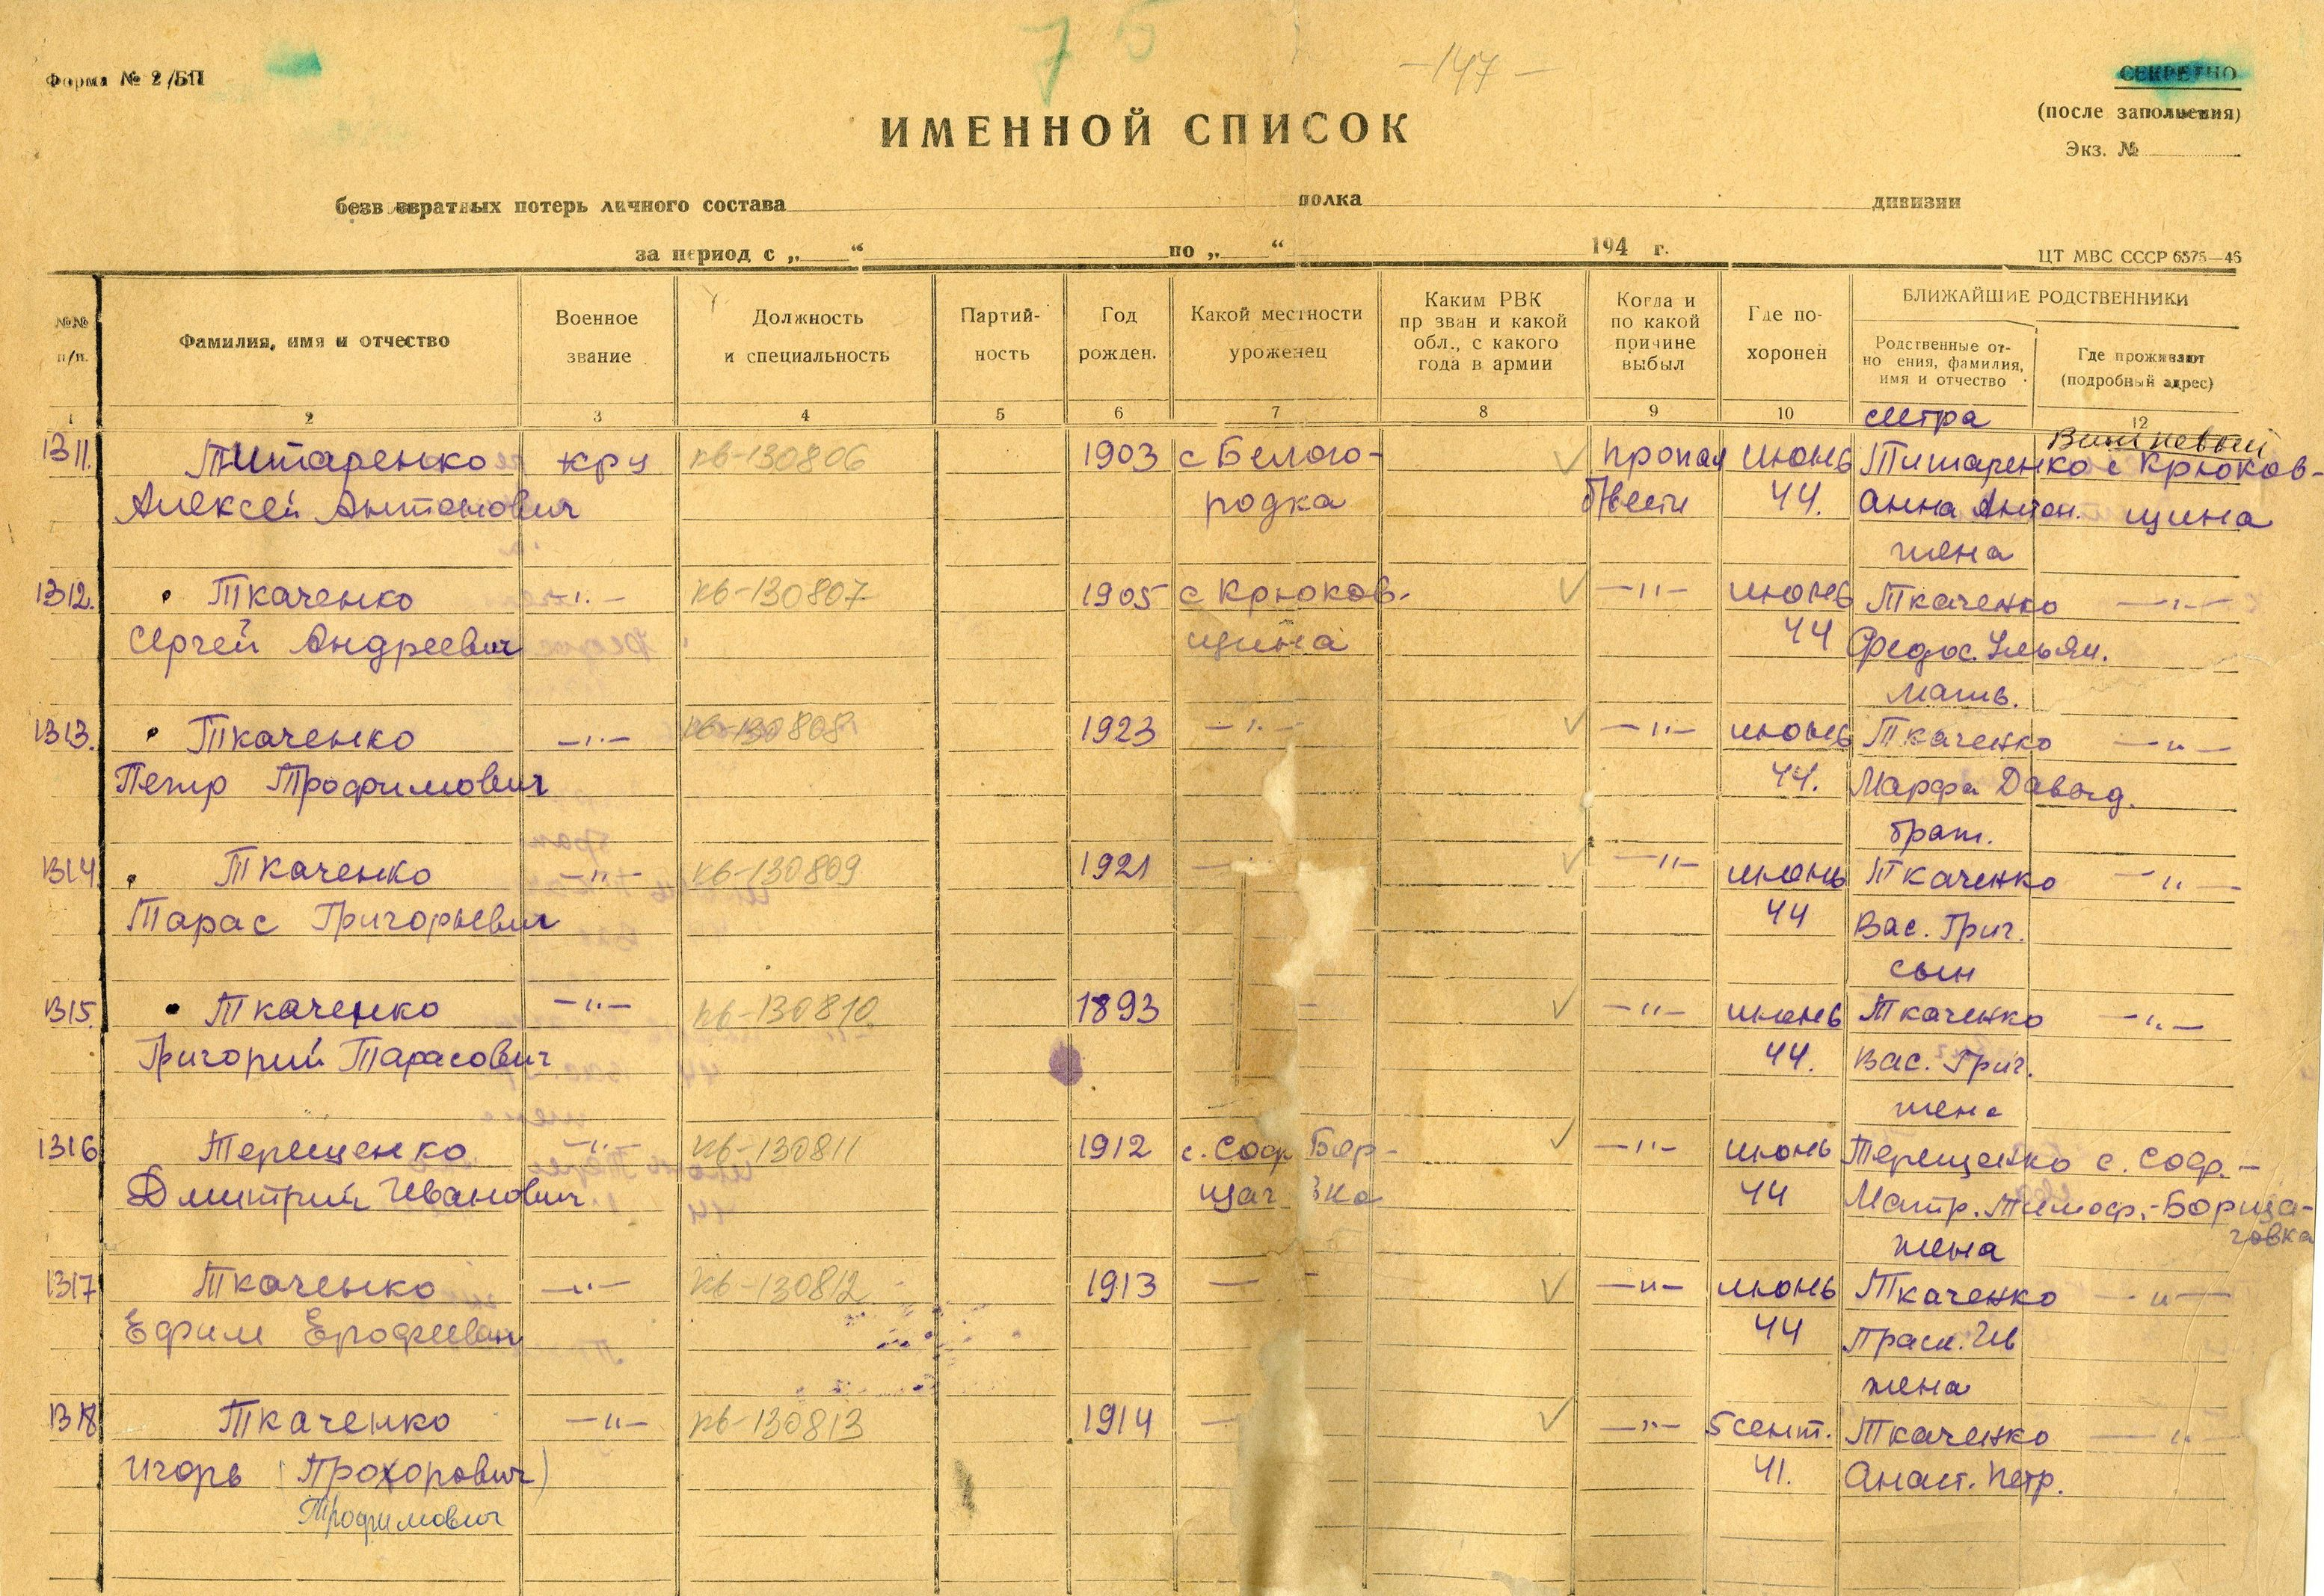 7 5
-147-
Форма № 2/БП
СЕКРЕТНО
(после заполнения)
Экз. №
ИМЕННОЙ СПИСОК
безвозвратных потерь личного состава полка дивизии
за период с „ “ по „ “ 194 г.
ЦТ МВС СССР 6575—46
№№ п/п.
Фамилия, имя и отчество
Военное звание
Должность и специальность
Партий-
ность
Год рожден.
Какой местности уроженец
Каким РВК
призван и какой
обл., с какого
года в армии
Когда и
по какой
причине
выбыл
Где по-
хоронен
БЛИЖАЙШИЕ РОДСТВЕННИКИ
Родственные от-
ношения, фамилия,
имя и отчество
Где проживают
(подробный адрес)
1 2 3 4 5 6 7 8 9 10 12
сестра
Вишневый
1311. Титаренко кр-ц кв-130806 1903 с Бело- пропал июнь Титаренко с Крюков-
Алексей Антонович родка б/вести 44. Анна Антон. щина
жена
1312. Ткаченко -"- кв-130807 1905 с Крюков- -"- июнь Ткаченко -"-
Сергей Андреевич щина 44 Федос. Ульян.
мать.
1313. Ткаченко -"- кв-130808 1923 -"- -"- июнь Ткаченко -"-
Петр Трофимович 44. Марфа Давыд.
брат.
1314. Ткаченко -"- кв-130809 1921 - -"- июнь Ткаченко -"-
Тарас Григорьевич 44 Вас. Григ.
сын
1315. Ткаченко -"- кв-130810 1893 - -"- июнь Ткаченко -"-
Григорий Тарасович 44. Вас. Григ.
жена
1316 Терещенко -"- кв-130811 1912 с. Соф Бор- -"- июнь Терещенко с. Соф.-
Дмитрий Иванович щаг вка 44 Матр. Тимоф. -Борща-
говка
жена
1317 Ткаченко -"- кв-130812 1913 - -"- июнь Ткаченко -"-
Ефим Ерофеевич 44 Праск. Ив
жена
1318 Ткаченко -"- кв-130813 1914 - -"- 5 сент. Ткаченко -"-
Игорь (Прохорович) 41. Анаст. Петр.
Трофимович